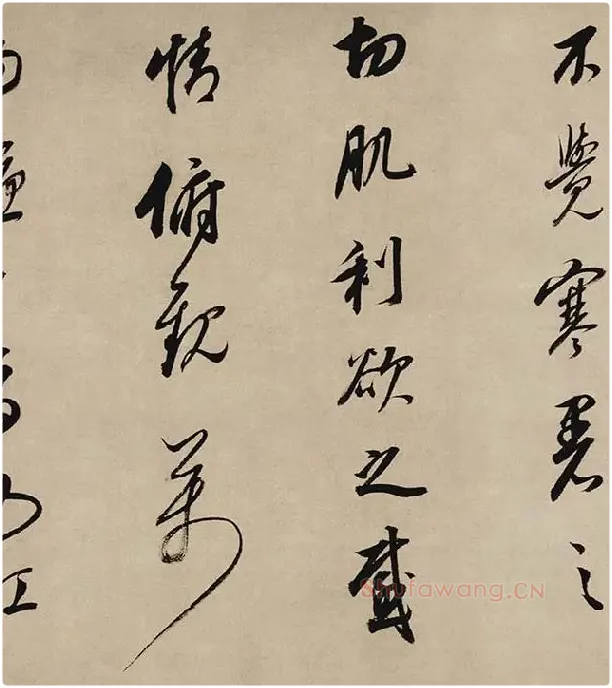 不覺寒暑之
切肌利欲之感
情俯觀萬
Shufawang.CN